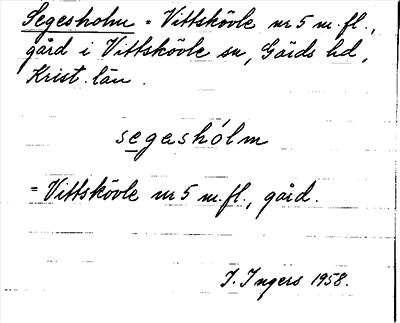 Segesholm = Vittskövle nr 5 m. fl.,
gård i Vittskövle sn, Gärds hd,
Krist. län.
segeshólm
= Vittskövle nr 5 m. fl., gård.
I. Ingers 1958.